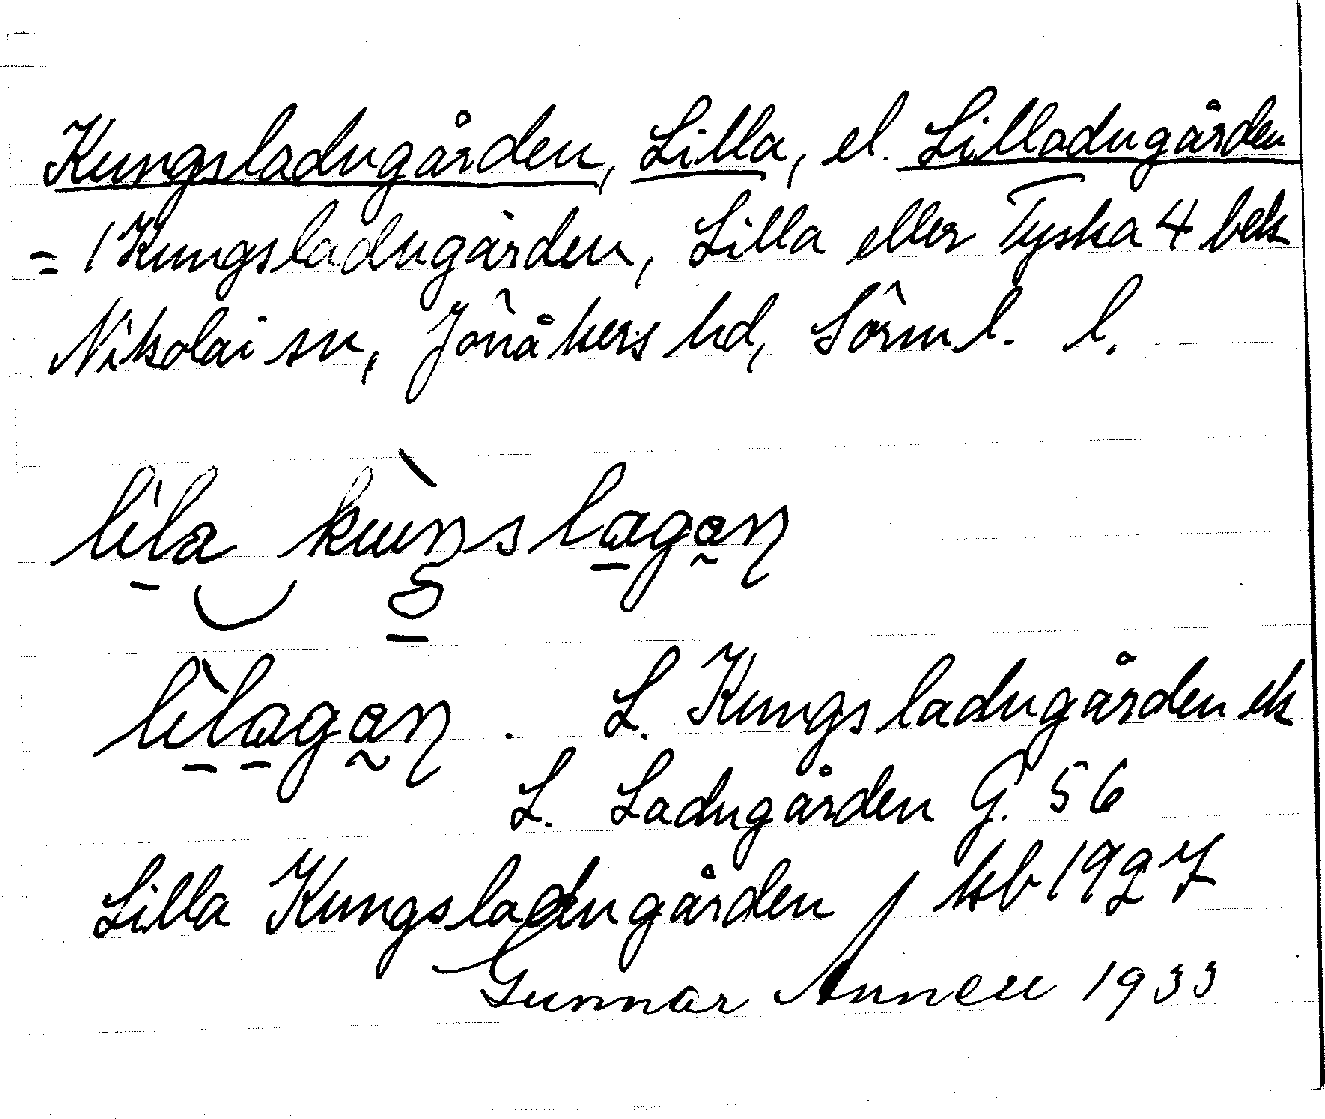 Kungsladugården, Lilla, el. Lilladugården
= 1 Kungsladugården, Lilla eller Tyska 4 bek
Nikolai sn, Jönåkers hd, Sörml. l.
lila kuns lagan
lilagan. L. Kungsladugården ek
L. Ladugården G. 56
Lilla Kungsladugården / kb 1927
Gunnar Annell 1933